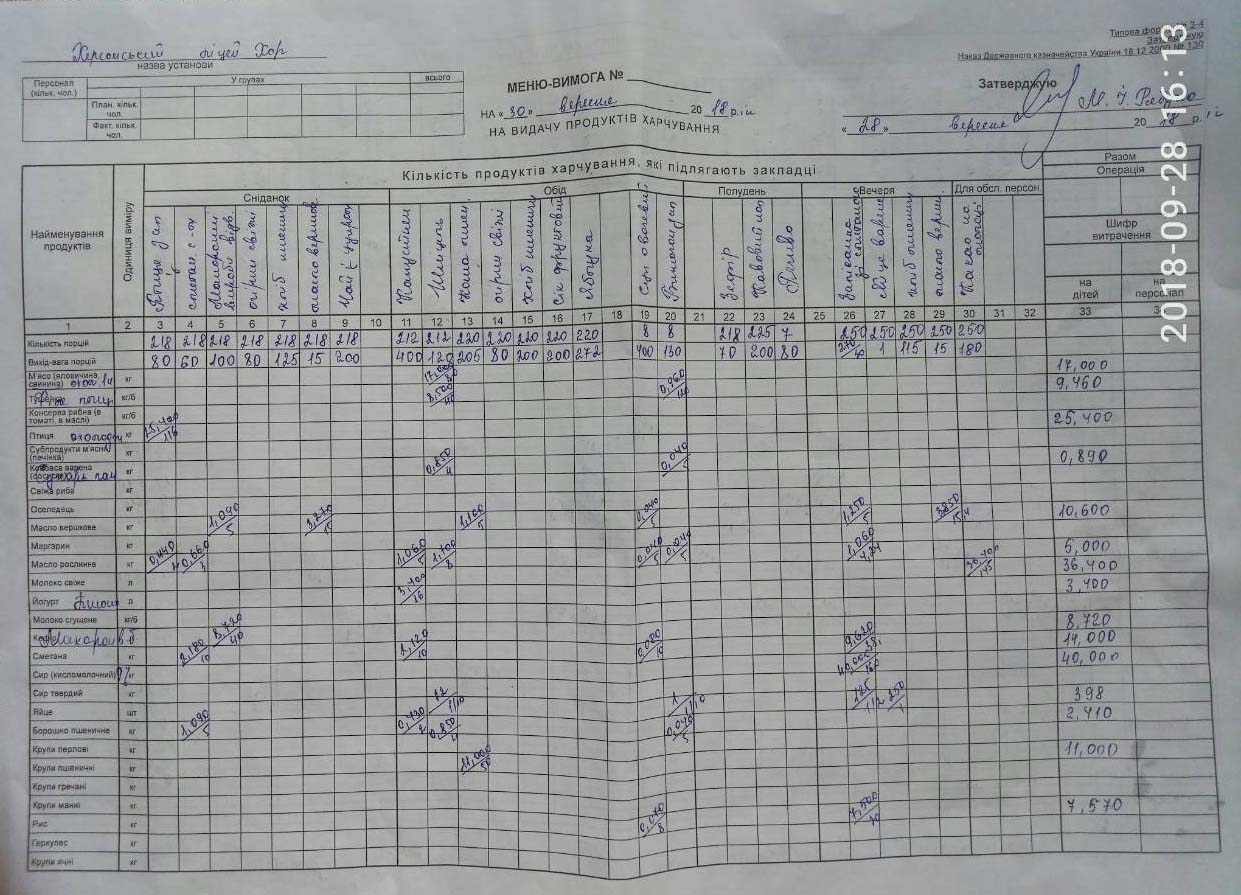 Херсонський ліцей Хор
назва установи
Типова фор
3-4
Наказ Державного казначейства України 18.12 2000 № 130
Персонал (кільк. чол.)
У групах
всього
План. кільк. чол.
Факт. кільк. чол.
МЕНЮ-ВИМОГА №
НА «30» вересня 2018 р.
НА ВИДАЧУ ПРОДУКТІВ ХАРЧУВАННЯ
Затверджую
«28» вересня 2018 р.
2018-09-28 16:13
Найменування продуктів
Одиниця виміру
Кількість продуктів харчування, які підлягають закладці
Разом
Операція
Сніданок
Обід
Полудень
Вечеря
Для обсл. персон.
Шифр витрачення
на дітей
на персонал
Птиця зап
Макаронні вироби відв
огірки свіжі
хліб пшенич
масло вершков
Чай з цукром
Капусняк
Шніцель
Каша пшен
огірки свіжі
Хліб пшенич
Сік фруктовий
Яблука
Суп овочевий
Зефір
Кавовий нап
Печиво
Яйце варене
хліб пшенич
масло верш
Какао на молоці
1 2 3 4 5 6 7 8 9 10 11 12 13 14 15 16 17 18 19 20 21 22 23 24 25 26 27 28 29 30 31 32 33
Кількість порцій 218 218 218 218 218 218 218 212 212 220 220 220 220 220 8 8 218 225 7 250 250 250 250 250
Вихід-вага порцій 80 60 100 80 125 15 200 400 120 205 80 200 200 272 400 130 70 200 80 270/10 1 115 15 180
М'ясо (яловичина, свинина) кг 17,000/80 17,000
кг/б 8,500/40 0,960/120 9,460
Консерва рибна (в томаті, в маслі) кг/б
Птиця охолодж кг 25,400/116 25,400
Субпродукти м'ясні (печінка) кг
Ковбаса варена (сосиски) кг 0,850/4 0,040/5 0,890
Свіжа риба кг
Оселедець кг
Масло вершкове кг 1,090/5 3,270/15 1,100/5 0,040/5 1,250/5 3,850/15,4 10,600
Маргарин кг
Масло рослинне кг 0,440/2 0,660/3 1,060/5 1,700/8 0,040/5 0,040/5 1,060/4,24 5,000
Молоко свіже л 36,400/145 36,400
Йогурт л 3,400/16 3,400
Молоко сгущене кг/б
Кефір Макарон в л 8,720/40 8,720
Сметана кг 2,180/10 2,120/10 0,080/10 9,620/38, 14,000
Сир (кисломолочний) 9% кг 40,000/160 40,000
Сир твердий кг
Яйце шт 12/1/10 1/1/10 125/1/2 250/1 398
Борошно пшеничне кг 1,090/5 0,430/2 0,850/4 0,040/5 2,410
Крупи перлові кг
Крупи пшеничні кг 11,000/50 11,000
Крупи гречані кг
Крупи манні кг
Рис кг 0,070/8 7,500/30 7,570
Геркулес кг
Крупи ячні кг